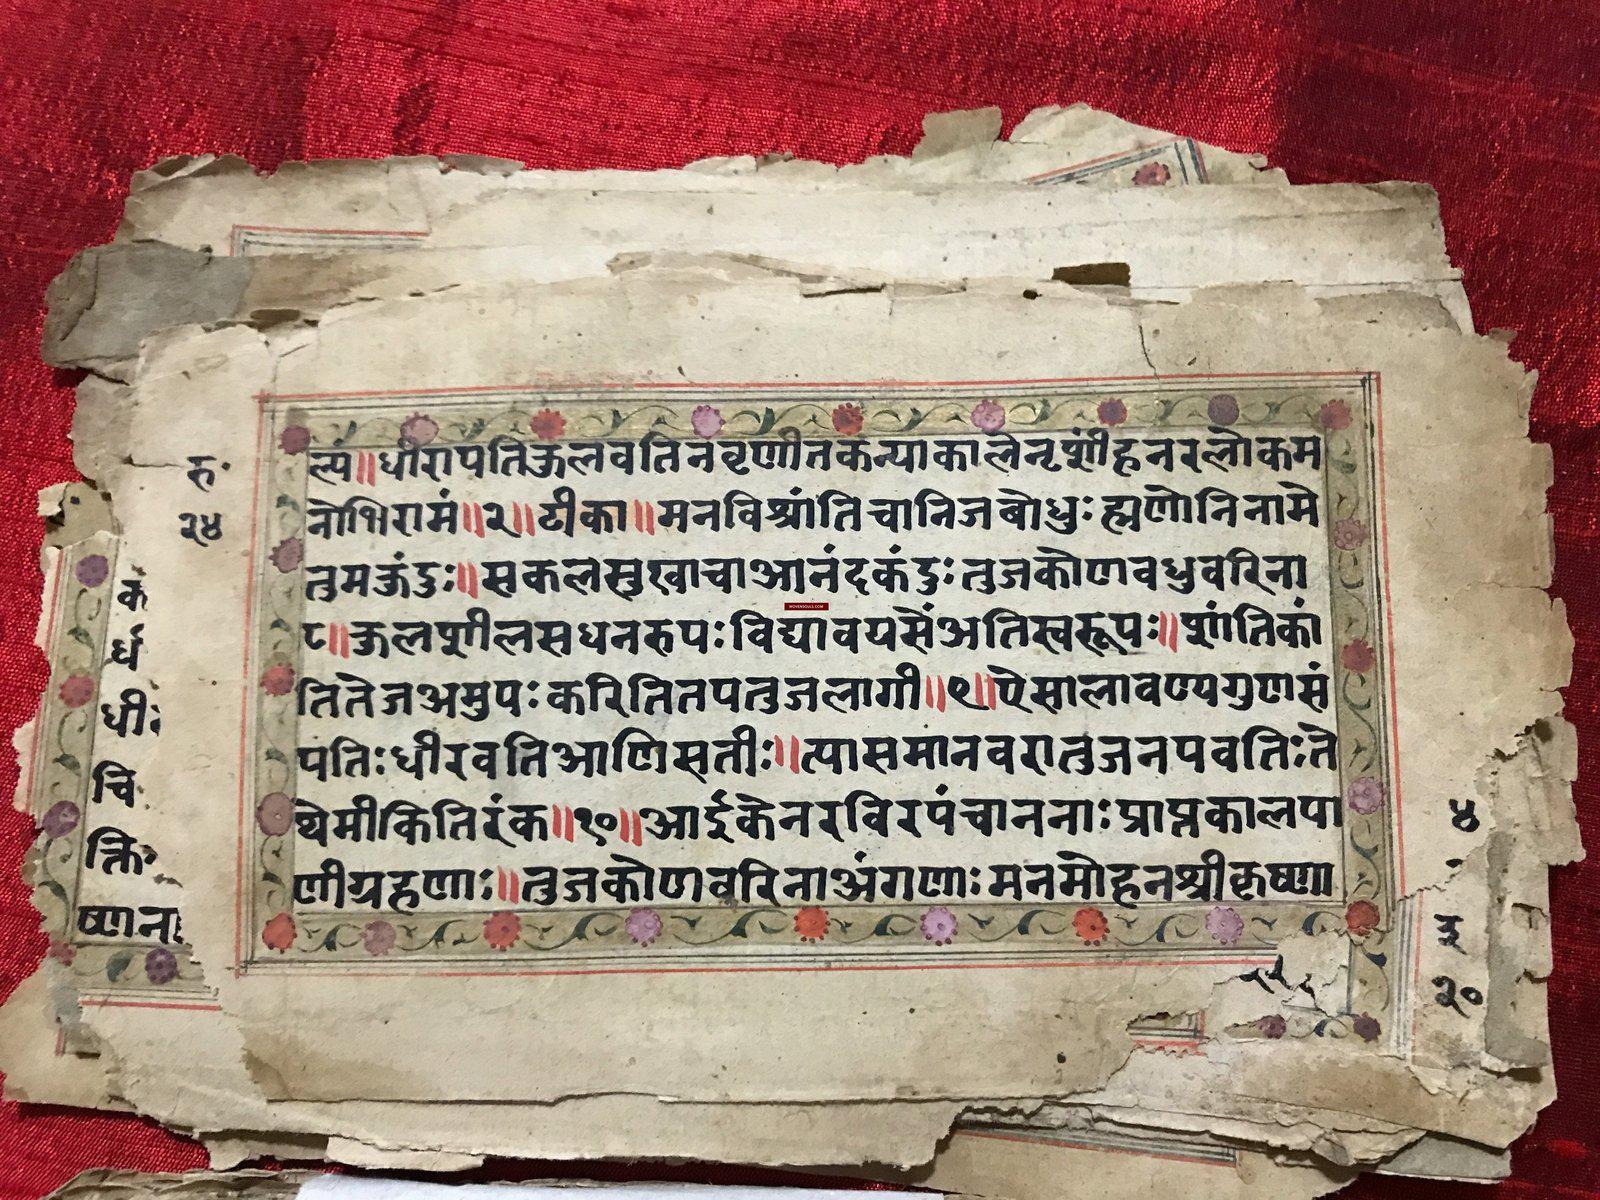 रु·
२४
ल्यं॥धीरापतिकुलवतिनवृणीतकन्याकालेनृशींहनरलोकम
नोभिरामं॥२॥टीका॥मनविश्रांतिचानिजबोधुःह्मणोनिनामे
तुमकुंदुः॥सकलसुखाचाआनंदकंदुःतुजकोणवधुवरिना
८॥कुलशीलसधनरुपःविद्यावयसेंअतिस्वरूपः॥शांतिकां
तितेजअमुपःकरितितपतुजलागी॥९॥ऐसालावण्यगुणसं
पतिःधीरवतिआणिसतीः॥त्यासमानवरातुजनपवतिःते
थेमीकितिरंक॥१०॥आईकेनरविरपंचाननाःप्राप्तकालपा
णीग्रहणाः॥तुजकोणवरिनाअंगणाःमनमोहनश्रीकृष्णा
क
र्ध
धीः
चि
क्ति
ष्णना
४
२०
WOVENSOULS.COM